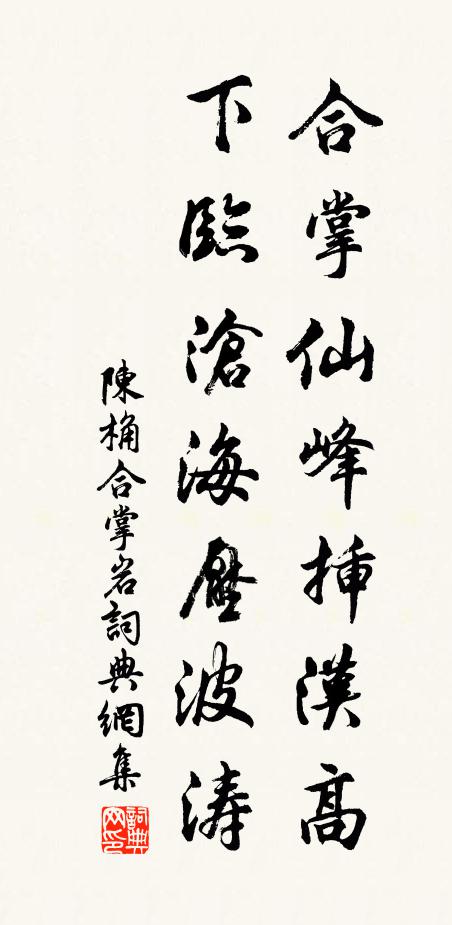 合掌仙峰插漢高
下臨滄海壓波濤
陳桷合掌岩詞典網集
詞典網印